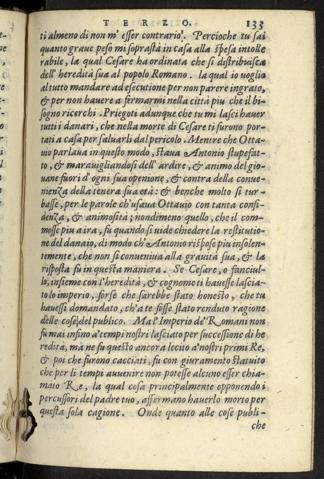 TERZO. 133
ti almeno di non m'esser contrario'. Percioche tu sai
quanto graue peso mi soprastà in casa alla spesa intolle
rabile, la qual Cesare ha ordinata che si distribuisca
dell'heredità sua al popolo Romano. la qual io uoglio
al tutto mandare ad esecutione per non parere ingrato,
& per non hauere a fermarmi nella città piu che il bi-
sogno ricerchi. Priegoti adunque che tu mi lasci hauer
tutti i danari, che nella morte di Cesare ti furono por-
tati a casa per saluarli dal pericolo. Mentre che Otta
uio parlaua in questo modo, staua Antonio stupefat-
to, & marauigliandosi dell'ardire, & animo del gio-
uane fuori d'ogni sua openione, & contra della conue-
nienza della tenera sua età: & benche molto si tur-
basse, per le parole ch'usaua Ottauio con tanta confi-
denza, & animosità; nondimeno quello, che il com-
mosse piu a ira, fu quando si uide chiedere la restitutio-
ne del danaio, di modo ch'Antonio rispose piu insolen-
temente, che non si conueniua alla grauità sua, & la
risposta fu in questa maniera. Se Cesare, o fanciul-
lo, insieme con l'heredità, & cognome ti hauesse lascia-
to lo imperio, forse che sarebbe stato honesto, che tu
hauessi domandato, ch'a te fosse stato renduto ragione
delle cose del publico. Ma l'Imperio de' Romani non
fu mai infino a' tempi nostri lasciato per successione di he
redità, ma ne fu questo ancora lecito a' nostri primi Re,
& poi che furono cacciati, fu con giuramento statuito
che per li tempi auuenire non potesse alcuno esser chia-
mato Re, la qual cosa principalmente opponendo i
percussori del padre tuo, affermano hauerlo morto per
questa sola cagione. Onde quanto alle cose publi-
che